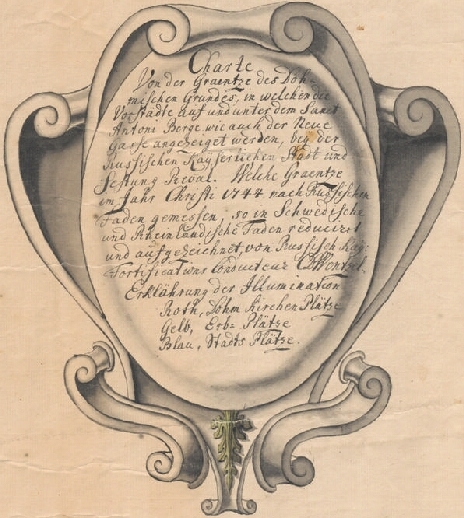 Charte
Von der Graentze des Döh-
mischen Grundes, in welchen die
Vorstadte Auf und unter dem Sanct
Antoni Berge, wie auch der Neue
Gasse angezeiget werden, bey der
Russischen Kayserlichen Stadt und
Festung Reval. Welche Graentze
im Jahr Christi 1744 nach Russischen
Faden gemessen, so in Schwedische
und Rheinlandische Faden reduzirt
und aufgezeichnet, von Russisch Kay:
Fortificatuns Conducteur
Erklährung der Illumination
Roth, Döhm Kirchen Plätze
Gelb, Erb= Plätze
Blau, Stadts Plätze.